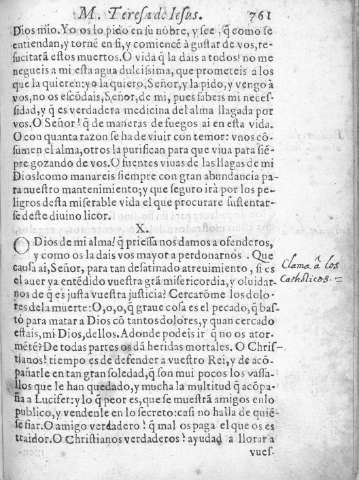 M. Teresa de Iesus. 761
Dios mio. Yo os lo pido en su nõbre, y see, q̃ como se
entiendan, y tornẽ en si, y comiencẽ à gustar de vos, re-
sucitarã estos muertos. O vida q̃ la dais a todos! no me
negueis a mi esta agua dulcissima, que prometeis a los
que la quieren: yo la quiero, Señor, y la pido, y vengo à
vos, no os escõdais, Señor, de mi, pues sabeis mi neces-
sidad, y q̃ es verdadera medicina del alma llagada por
vos. O Señor! q̃ de maneras de fuegos ai en esta vida.
O con quanta razon se ha de viuir con temor: vnos cõ-
sumen el alma, otros la purifican para que viua para siẽ-
pre gozando de vos. O fuentes viuas de las llagas de mi
Dios! como manareis siempre con gran abundancia pa-
ra nuestro mantenimiento; y que seguro irà por los pe-
ligros desta miserable vida el que procurare sustentar-
se deste diuino licor.
X.
O Dios de mi alma! q̃ priessa nos damos a ofenderos,
y como os la dais vos mayor a perdonarnos. Que
causa ai, Señor, para tan desatinado atreuimiento, si es
el auer ya entẽdido vuestra grã misericordia, y oluidar-
nos de q̃ es justa vuestra justicia? Cercarõme los dolo-
res de la muerte: O, o, o, q̃ graue cosa es el pecado, q̃ bas-
tò para matar a Dios cõ tantos dolores, y quan cercado
estais, mi Dios, dellos. Adonde podeis ir q̃ no os ator-
mẽtẽ? De todas partes os dã heridas mortales. O Chris-
tianos! tiempo es de defender a vuestro Rei, y de acõ-
pañarle en tan gran soledad, q̃ son mui pocos los vassa-
llos que le han quedado, y mucha la multitud q̃ acõpa-
ña a Lucifer: y lo q̃ peor es, que se muestrã amigos en lo
publico, y vendenle en lo secreto: casi no halla de quiẽ
se fiar. O amigo verdadero! q̃ mal os paga el que os es
traidor. O Christianos verdaderos! ayudad a llorar a
vues-
Clama â los
Cathólicos.